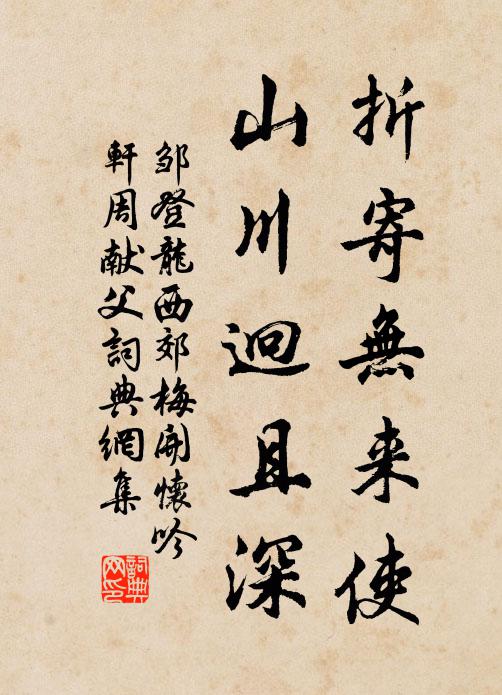 折寄無来使
山川迥且深
鄒登龍西郊梅開懷吟
軒周献父詞典網集
詞典網印